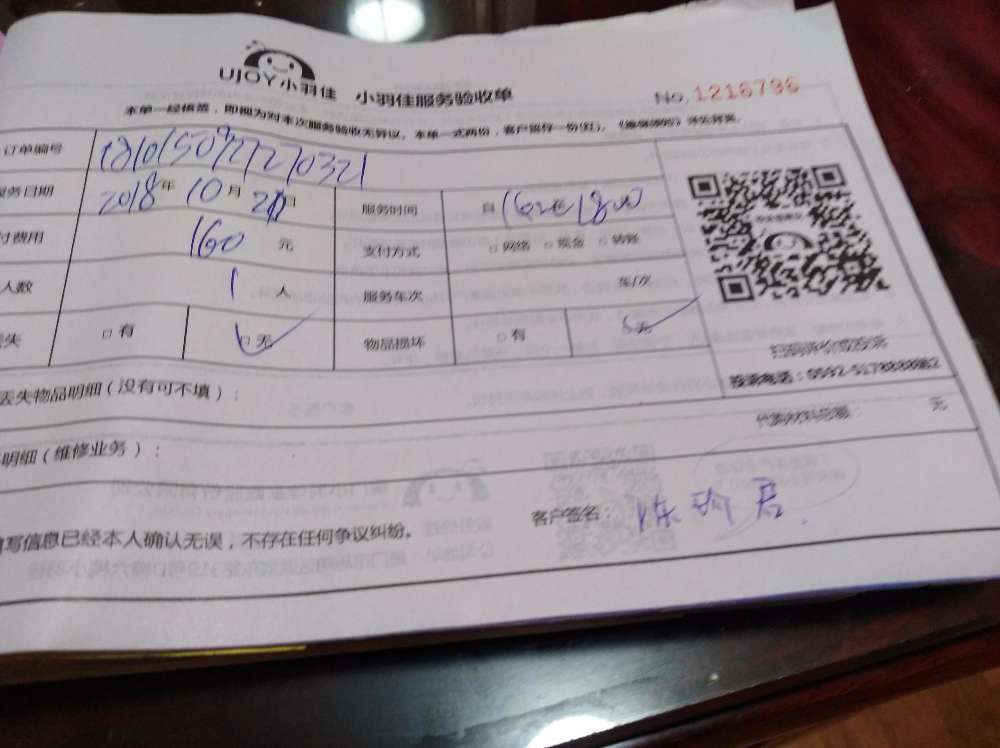 UJOY小羽佳 小羽佳服务验收单 No.1216796
本单一经核签，即视为对本次服务验收无异议，本单一式两份，客户留存一份(红)。
订单编号
服务日期 2018年10月 日 服务时间 自
付费用 160元 支付方式 □网络 □现金 □转账
人数 1人 服务车次 车/次
失 □有 □无 物品损坏 □有 □无
扫码评价或投诉
投诉电话：0592-5178888
丢失物品明细（没有可不填）：
代购材料总额： 元
明细（维修业务）：
填写信息已经本人确认无误，不存在任何争议纠纷。 客户签名：